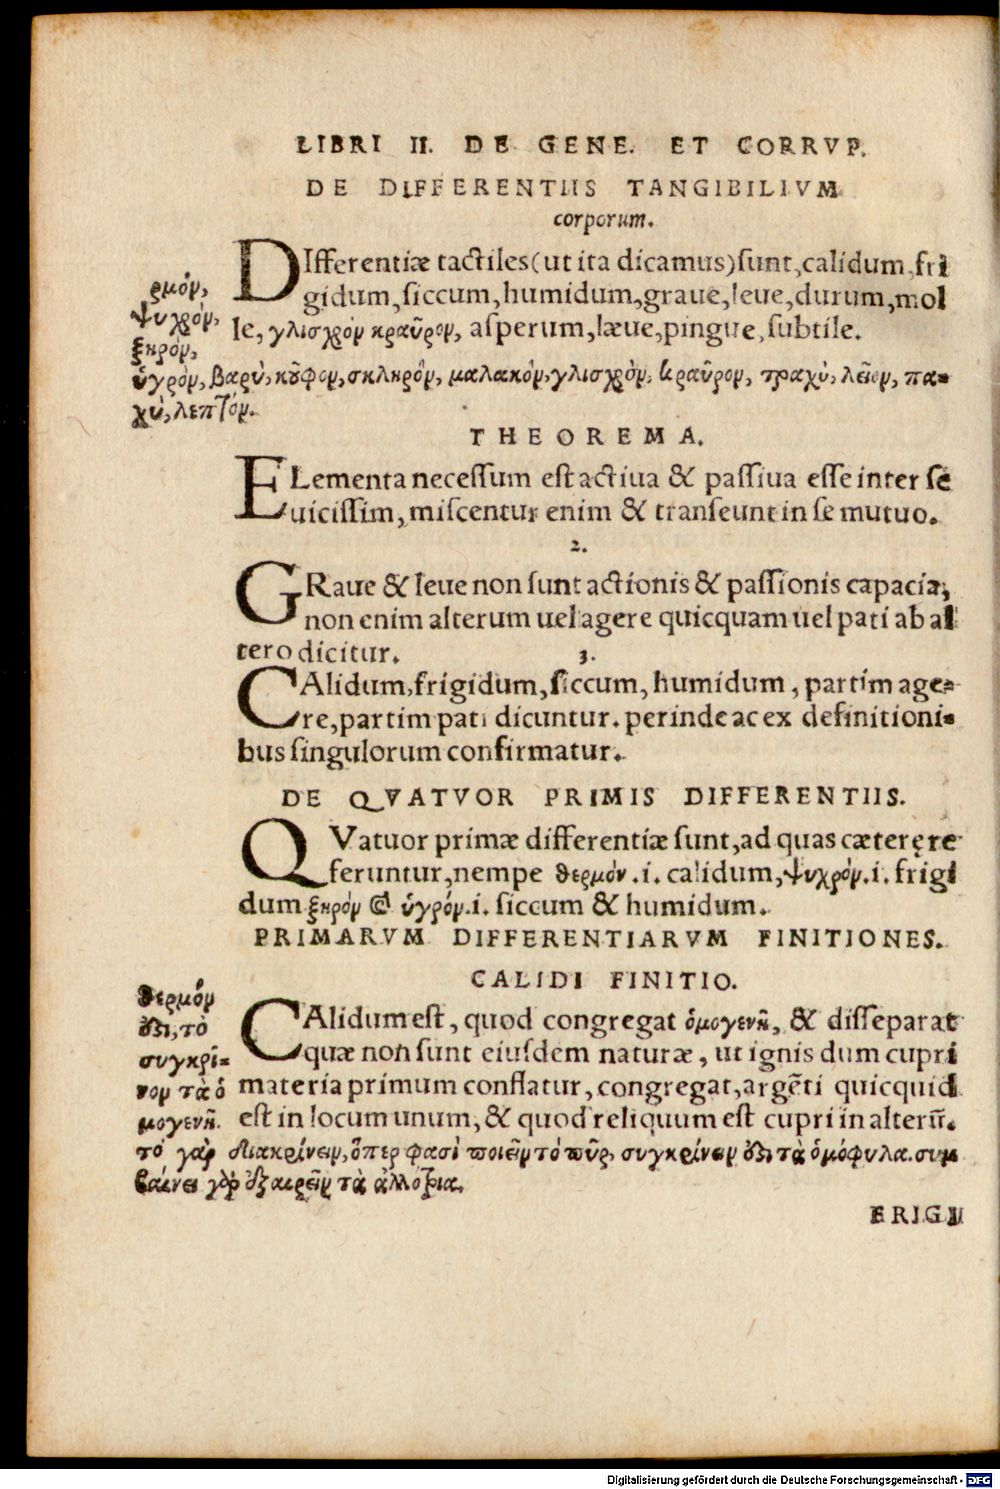 LIBRI II. DE GENE. ET CORRVP.
DE DIFFERENTIIS TANGIBILIVM
corporum.
DIfferentiæ tactiles(ut ita dicamus)sunt,calidum,fri
gidum,siccum,humidum,graue,leue,durum,mol
le, γλισχρόν κραῦρον, asperum,læue,pingue,subtile.
ρμόν,
ψυχρόν,
ξηρόν,
ὑγρὸν, βαρὺ, κȣ̃φον, σκληρὸν, μαλακὸν, γλισχρὸν, κραῦρον, τραχὺ, λεῖον, πα=
χὺ, λεπτόν.
THEOREMA.
ELementa necessum est actiua & passiua esse inter se
uicissim, miscentur enim & transeunt in se mutuo.
2.
GRaue & leue non sunt actionis & passionis capacia,
non enim alterum uel agere quicquam uel pati ab al
tero dicitur.
3.
CAlidum,frigidum,siccum, humidum, partim age=
re,partim pati dicuntur. perinde ac ex definitioni=
bus singulorum confirmatur.
DE QVATVOR PRIMIS DIFFERENTIIS.
QVatuor primæ differentiæ sunt,ad quas cæterę re
feruntur,nempe θερμόν .i. calidum,ψυχρόν.i. frigi
dum ξηρόν & ὑγρόν.i. siccum & humidum.
PRIMARVM DIFFERENTIARVM FINITIONES.
CALIDI FINITIO.
θερμὸν
ὅτι, τὸ
συγκρῖ=
νον τὰ ὁ
μογενῆ.
CAlidum est, quod congregat ὁμογενῆ, & disseparat
quæ non sunt eiusdem naturæ, ut ignis dum cupri
materia primum conflatur, congregat,argẽti quicquid
est in locum unum, & quod reliquum est cupri in alterũ.
τὸ γὰρ διακρίνειν, ὅπερ φασὶ ποιεῖν τὸ πῦρ, συγκρίνειν ὅτι τὰ ὁμόφυλα. συμ
βαίνει γὰρ ἐξαιρεῖν τὰ ἀλλότρια.
ERIGI
Digitalisierung gefördert durch die Deutsche Forschungsgemeinschaft - DFG